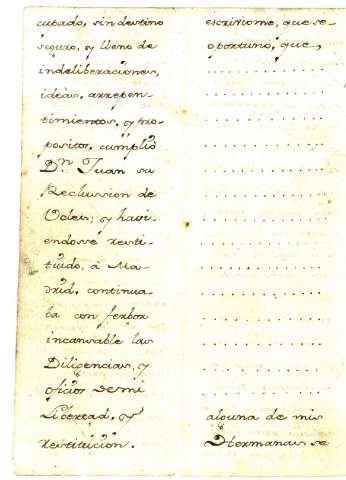 cupado, sin destino
seguro, y lleno de
indeliberaciones,
idéas, arrepen-
timientos, y pro-
positos, cumplió
Dn. Juan su
Reclussion de
Ucles; y havi-
endosse resti-
tuido, à Ma-
drid, continua-
ba con ferbor
incansable las
Diligencias, y
oficios de mi
Libertad, y
restitucion.
escriviome, que se-
oportuno, que,
. . . . . . . . . . . . . .
. . . . . . . . . . . . . .
. . . . . . . . . . . . . .
. . . . . . . . . . . . . .
. . . . . . . . . . . . . .
. . . . . . . . . . . . . .
. . . . . . . . . . . . . .
. . . . . . . . . . . . . .
. . . . . . . . . . . . . .
. . . . . . . . . . . . . .
. . . . . . . . . . . . . .
. . . . . . . . . . . . . .
. . . . . . . . . . . . . .
. . . . . . . . . . . . . .
alguna de mis
Hermanas se